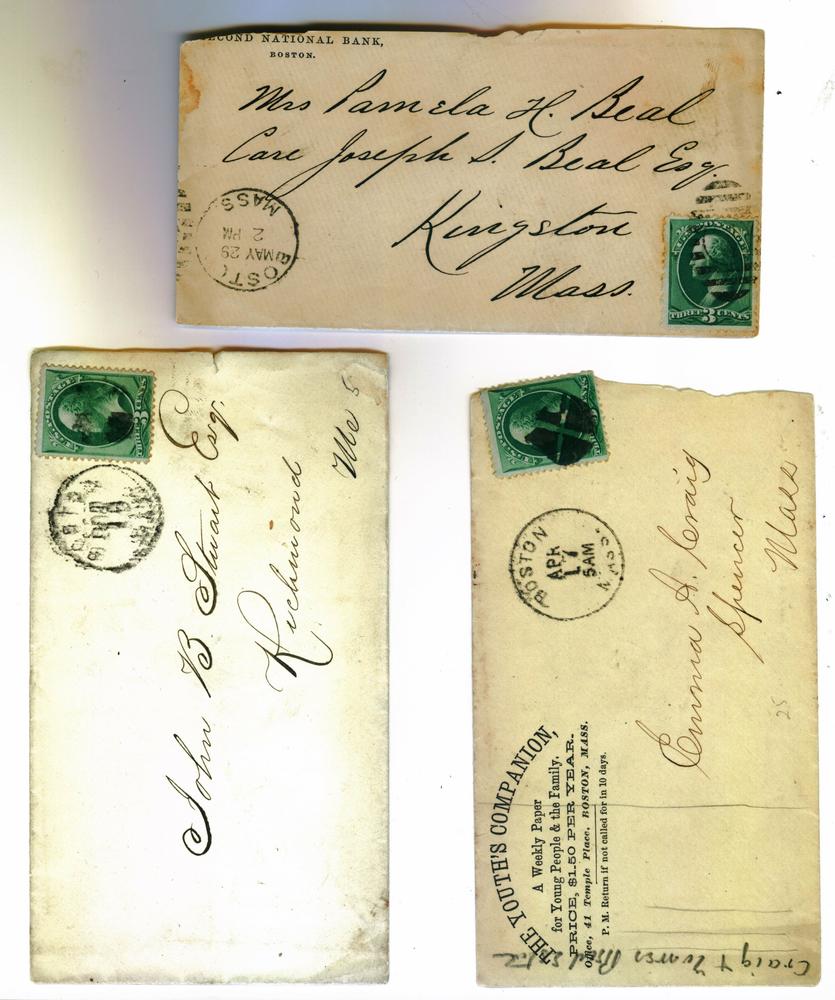 SECOND NATIONAL BANK,
BOSTON.
Mrs Pamela H. Beal
Care Joseph S. Beal Esq.
Kingston
Mass.
MASS
MAY 29
2 PM
U.S. POSTAGE
THREE 3 CENTS
U.S. POSTAGE
THREE 3 CENTS
John B Stuart Esq.
Richmond
Me
U.S. POSTAGE
BOSTON
APR
17
5AM
MASS.
Emma A. Craig
Spencer
Mass.
25
THE YOUTH'S COMPANION,
A Weekly Paper
for Young People & the Family.
PRICE, $1.50 PER YEAR.
Office, 41 Temple Place, BOSTON, MASS.
P. M. Return if not called for in 10 days.
Craig &